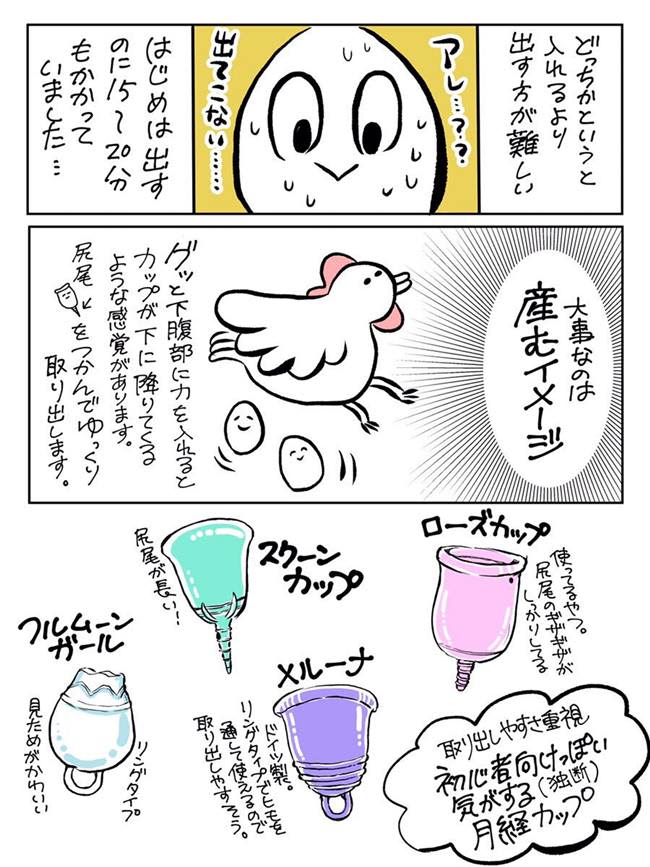 どっちかというと
入れるより
出す方が難しい
アレ…??
出てこない……
はじめは出す
のに15〜20分
もかかって
いました…
大事なのは
産むイメージ
グッと下腹部に力を入れると
カップが下に降りてくる
ような感覚があります。
尻尾
をつかんでゆっくり
取り出します。
ローズカップ
使ってるやつ。
尻尾のギザギザが
しっかりしてる
スクーン
カップ
尻尾が長い!
フルムーン
ガール
リングタイプ
見ためがかわいい
メルーナ
ドイツ製。
リングタイプでヒモを
通して使えるので
取り出しやすそう。
取り出しやすさ重視
初心者向けっぽい
気がする(独断)
月経カップ